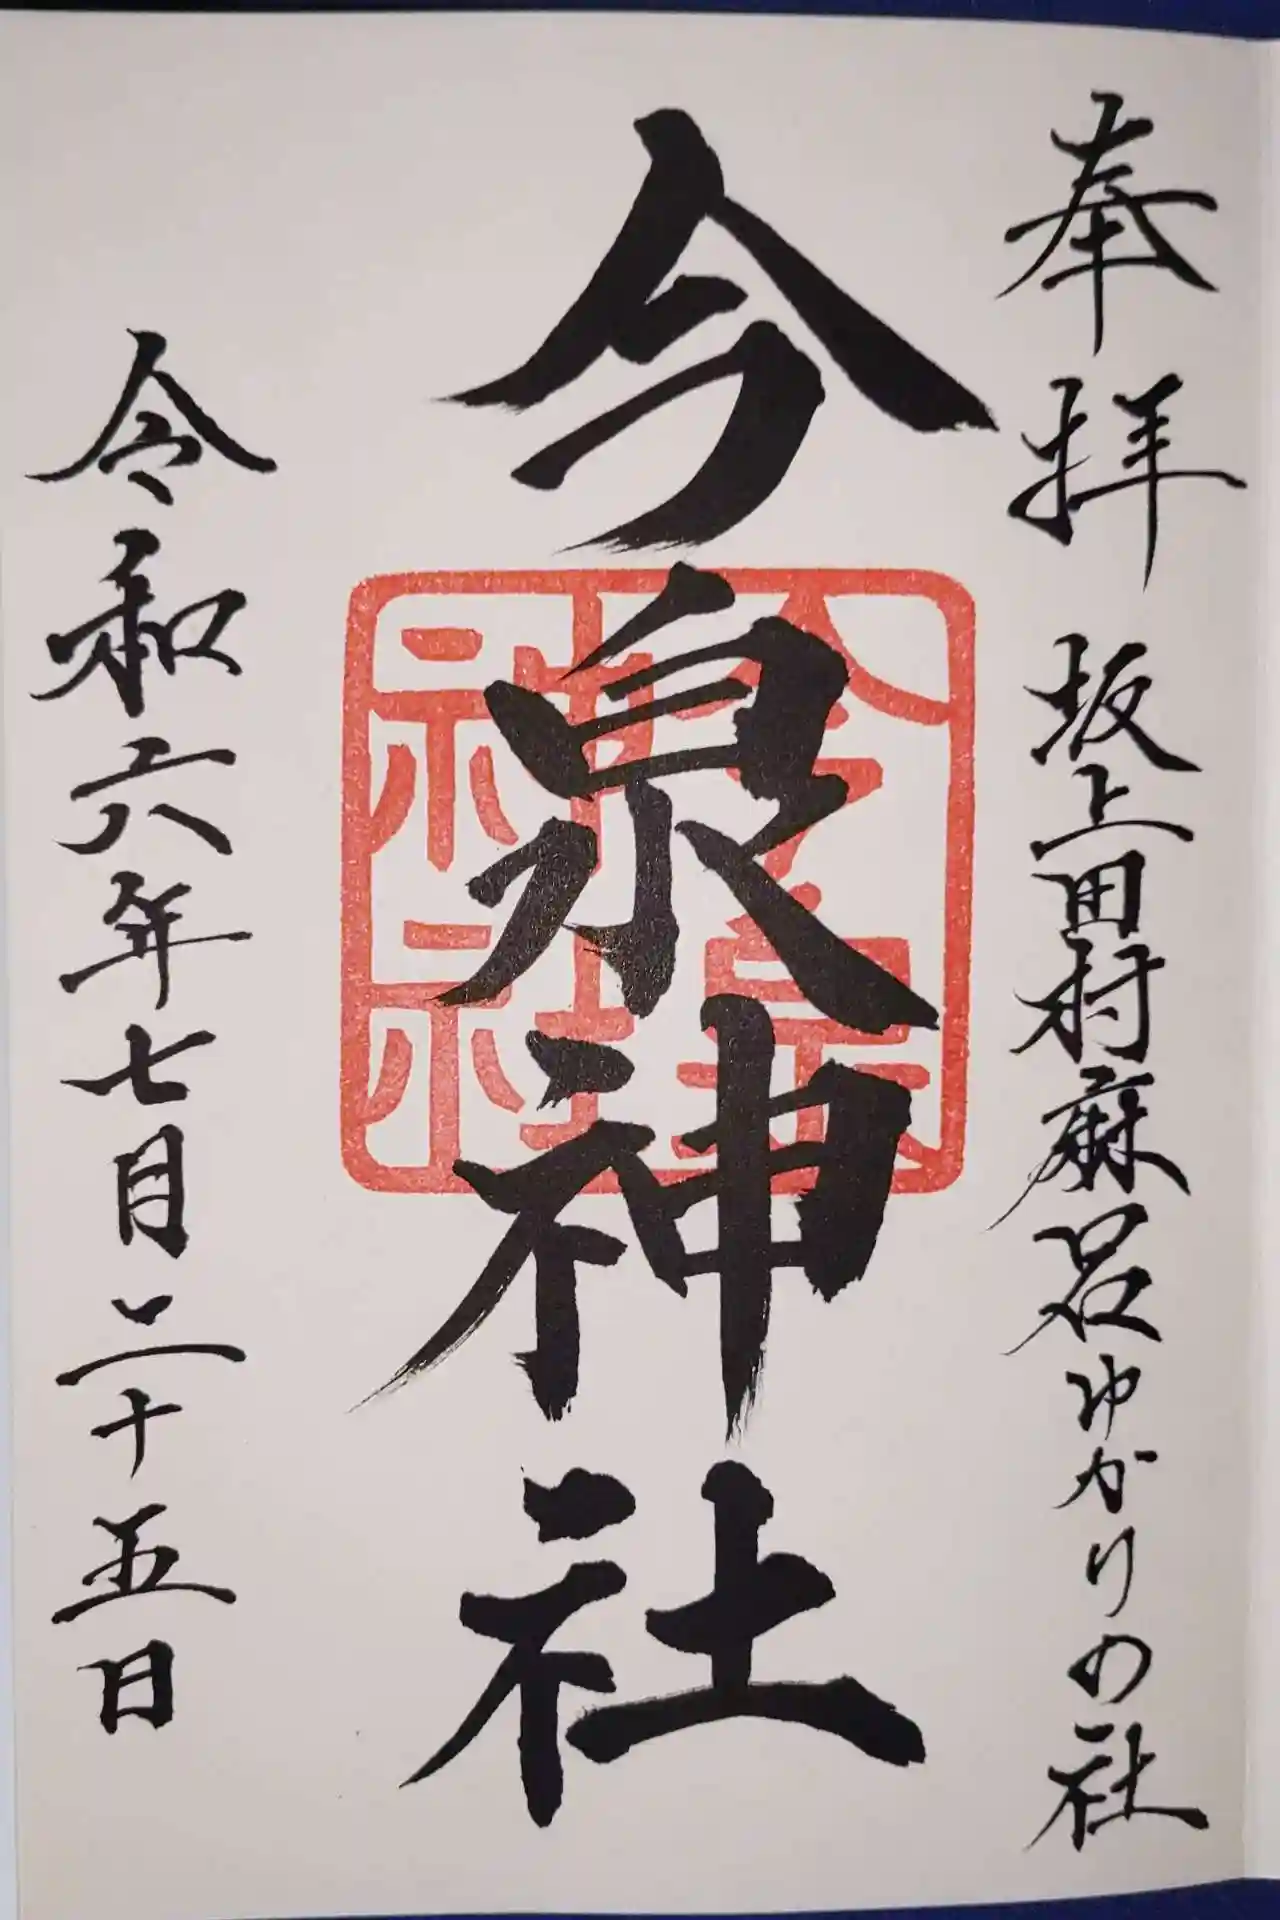 奉拝 坂上田村麻呂ゆかりの社
今泉神社
今泉
神社
令和六年七月二十五日